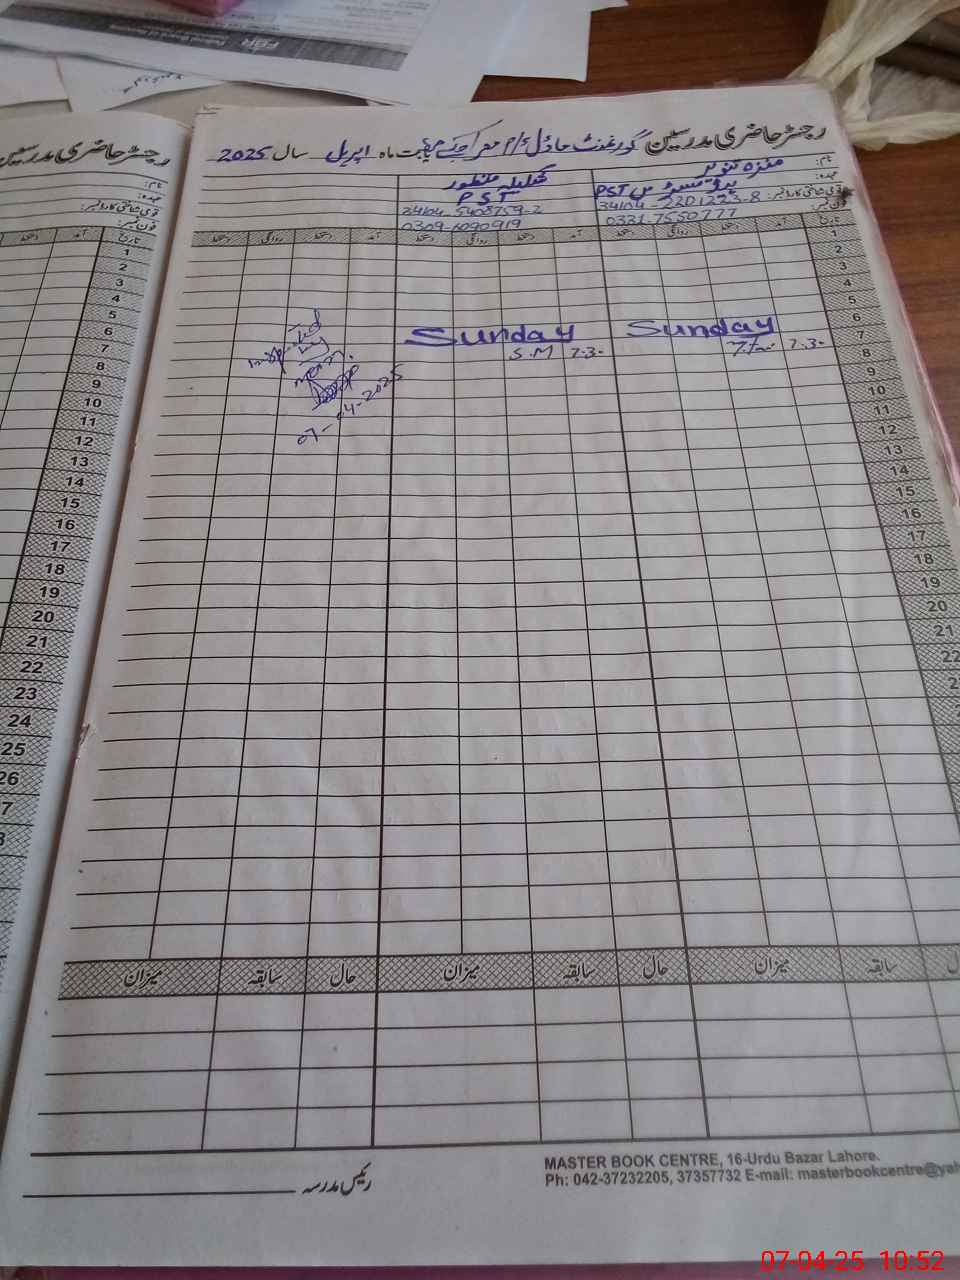 رجسٹر حاضری مدرسین گورنمنٹ ماڈل بابت ماہ اپریل سال 2025
نام: منزہ تنویر
عہدہ: PST
قومی شناختی کارڈ نمبر: 34104-2201223-8
فون نمبر: 0331-7550777
شکیلہ منظور
PST
34104-5408759-2
0309-6090919
تاریخ آمد دستخط روانگی دستخط آمد دستخط روانگی دستخط آمد دستخط روانگی دستخط
1
2
3
4
5
6 Sunday Sunday
7 7.30 7.30 S.M
8
9
10
11
12
13
14
15
16
17
18
19
20
21
22
Inspected
by
07-04-2025
حال سابقہ میزان حال سابقہ میزان حال سابقہ میزان
رئیس مدرسہ
MASTER BOOK CENTRE, 16-Urdu Bazar Lahore.
Ph: 042-37232205, 37357732 E-mail: masterbookcentre@yah
رجسٹر حاضری مدرسین
نام:
عہدہ:
قومی شناختی کارڈ نمبر:
فون نمبر:
تاریخ آمد دستخط
1
2
3
4
5
6
7
8
9
10
11
12
13
14
15
16
17
18
19
20
21
22
23
24
25
26
FBR
07-04-25 10:52